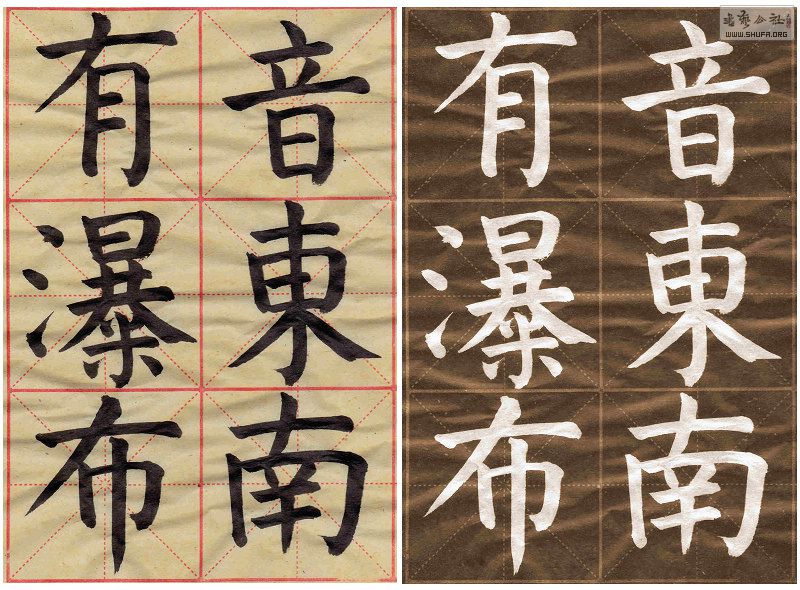 音東南
有瀑布
音東南
有瀑布
公社
WWW.SHUFA.ORG